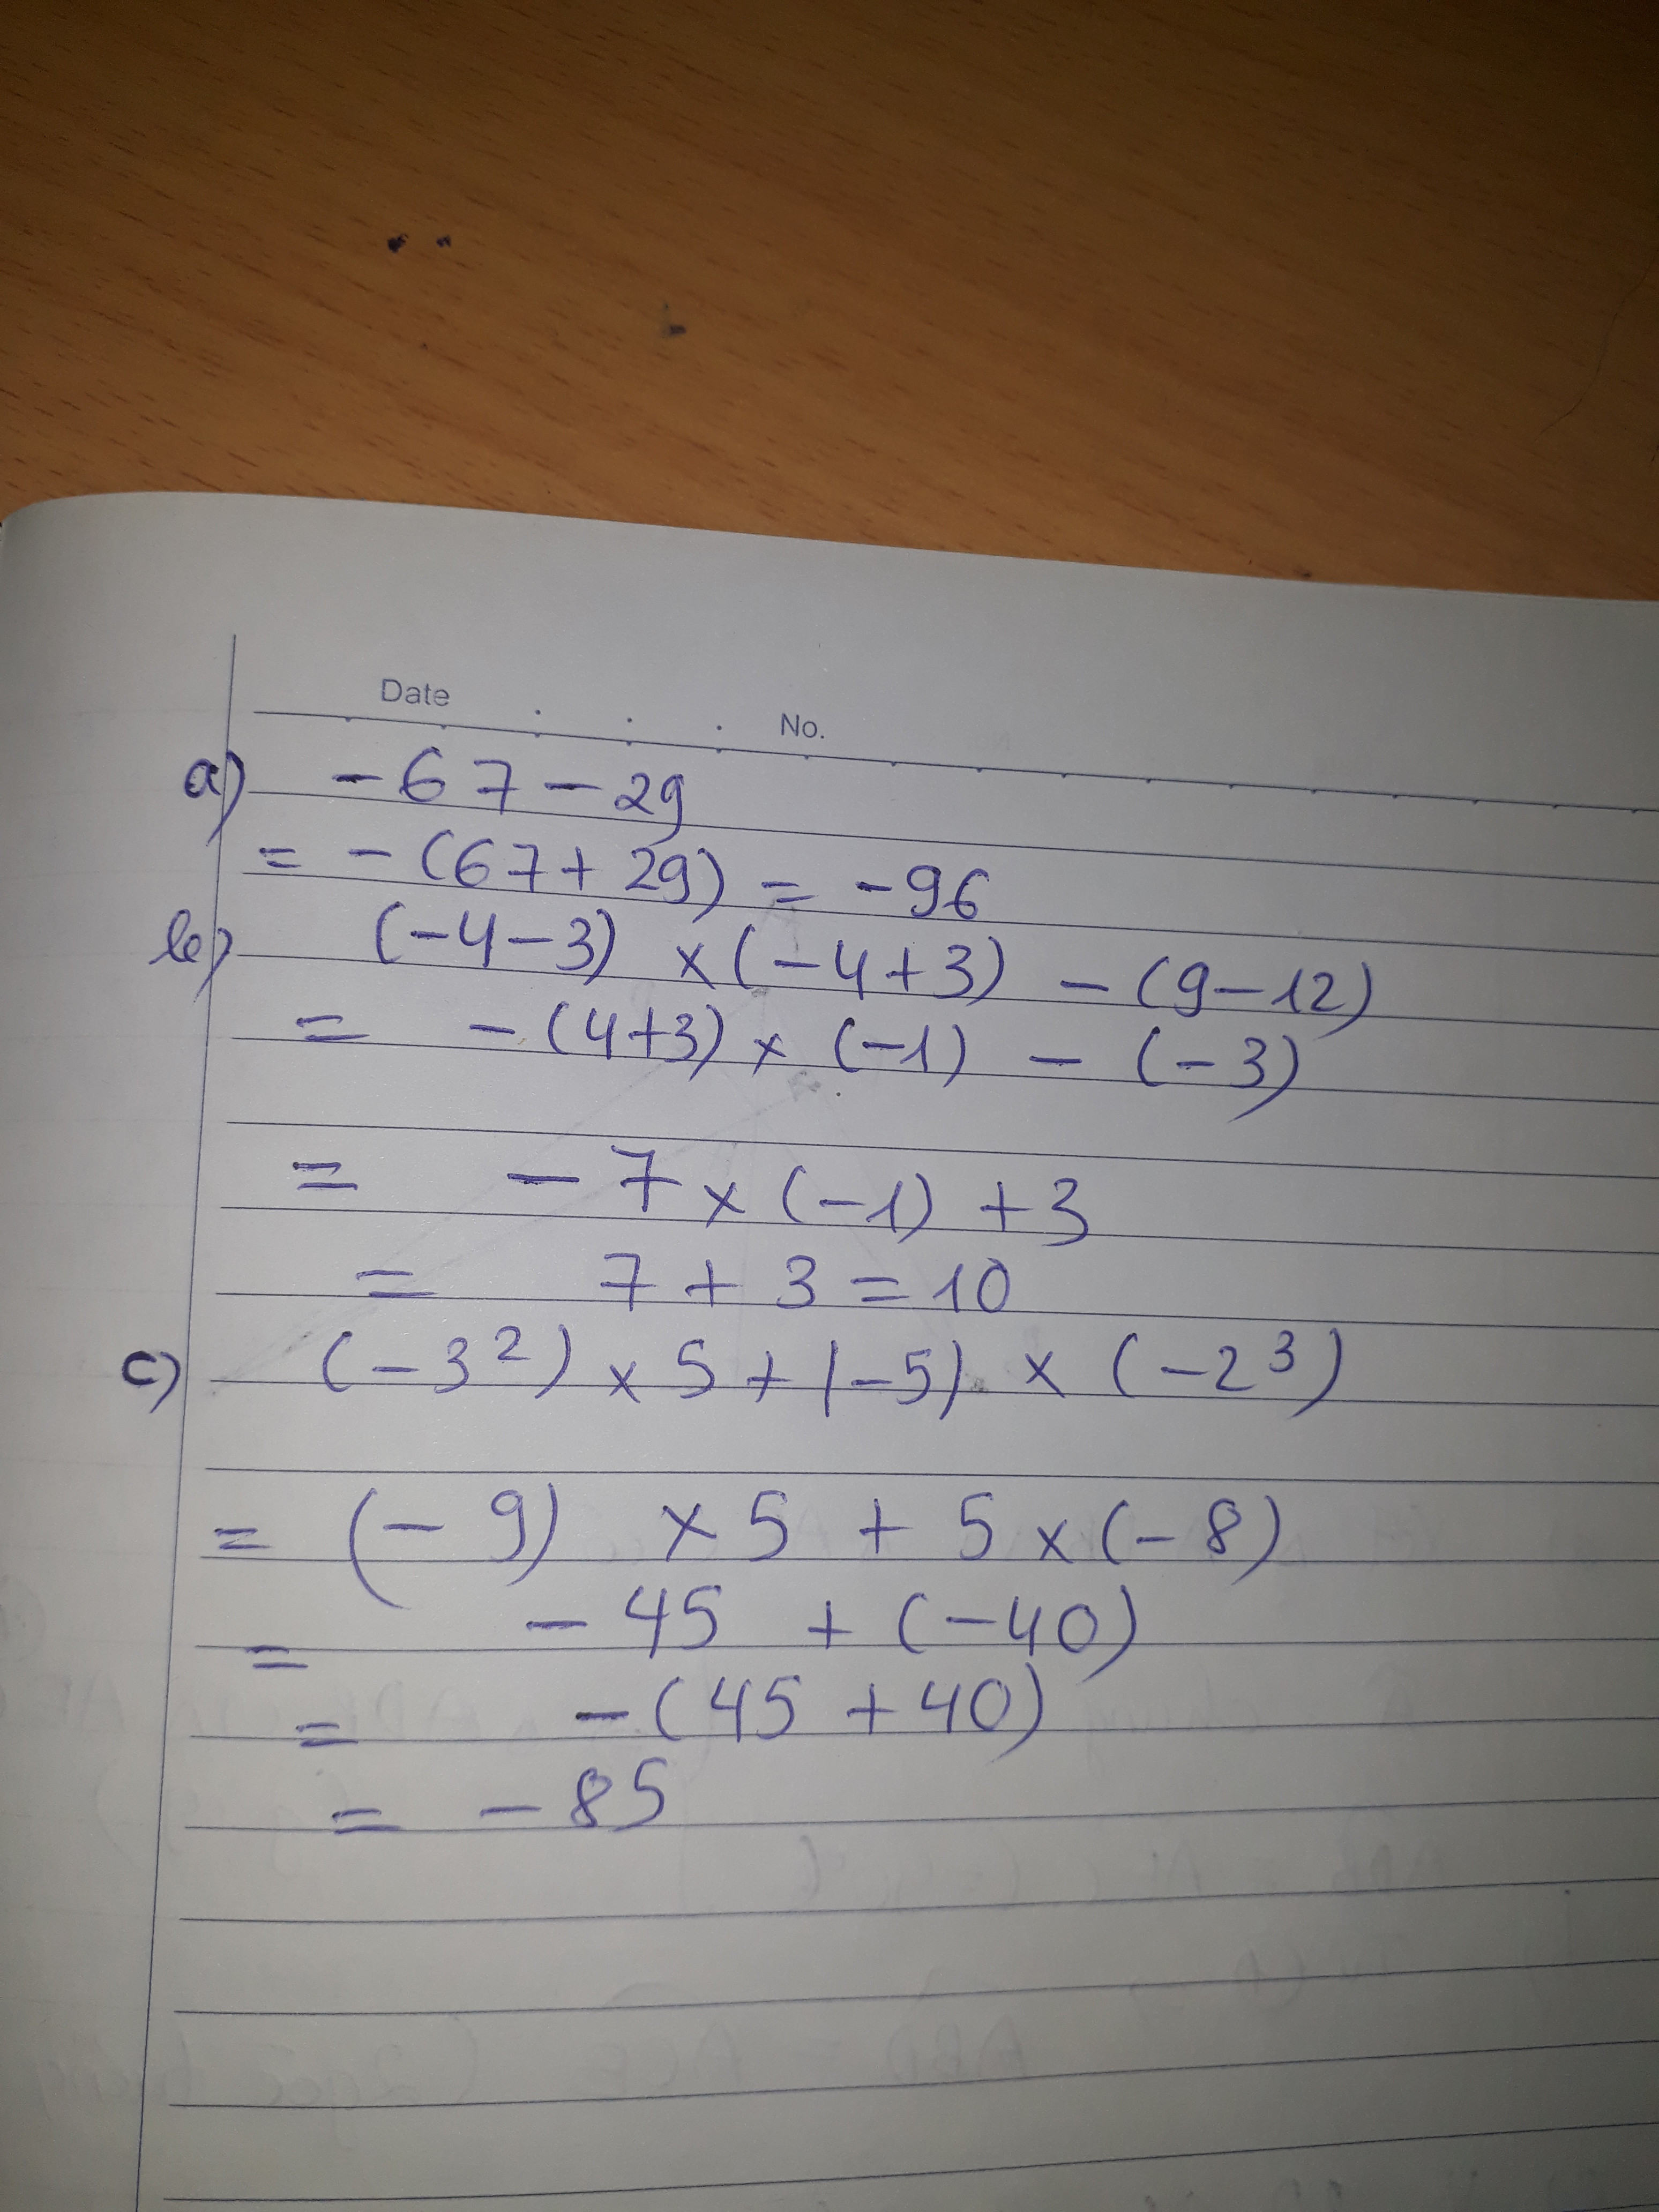 Date . . . No.
a) -67-29
= -(67+29) = -96
b) (-4-3) ×(-4+3) - (9-12)
= -(4+3) × (-1) - (-3)
= -7×(-1) +3
= 7 + 3 = 10
c) (-3²) × 5 + |-5| × (-2³)
= (-9) ×5 + 5×(-8)
= -45 + (-40)
= -(45 +40)
= -85